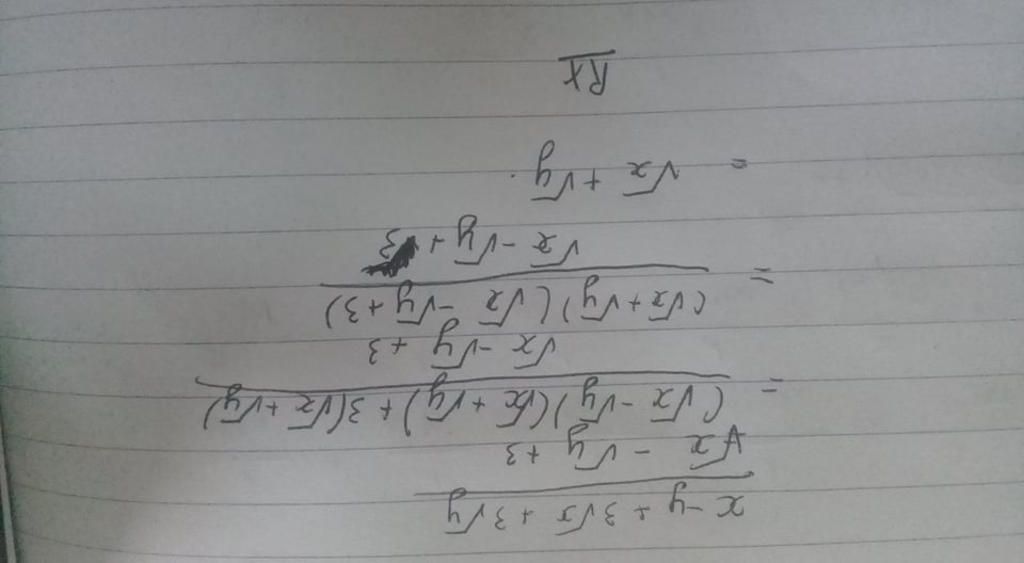 x - y + 3√x + 3√y
√x - √y + 3
= (√x - √y)(√x + √y) + 3(√x + √y)
√x - √y + 3
= (√x + √y)(√x - √y + 3)
√x - √y + 3
= √x + √y.